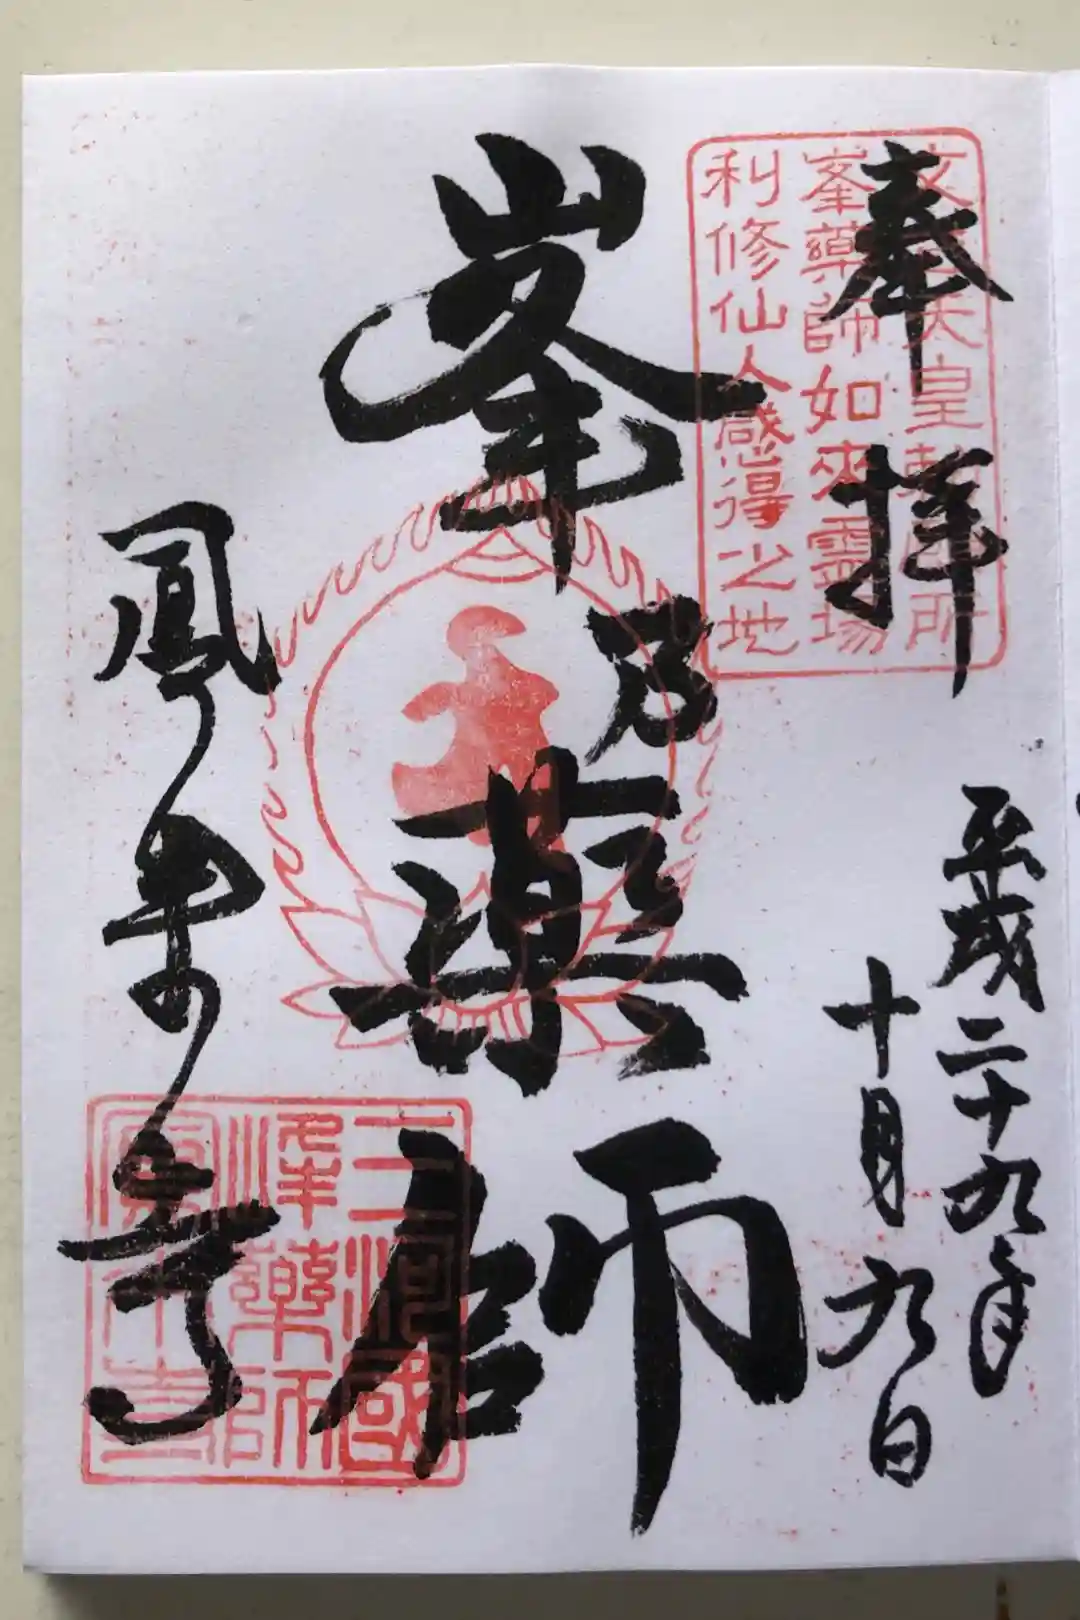 奉拝
平成二十九年
十月九日
文武天皇勅願所
峯藥師如來靈場
利修仙人感得之地
峯乃薬師
鳳来寺
三河國
峰藥師